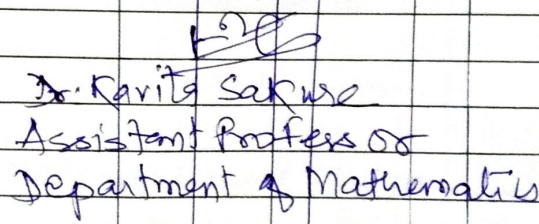 Dr. Kavita Sakure
Assistant Professor
Department of Mathematics